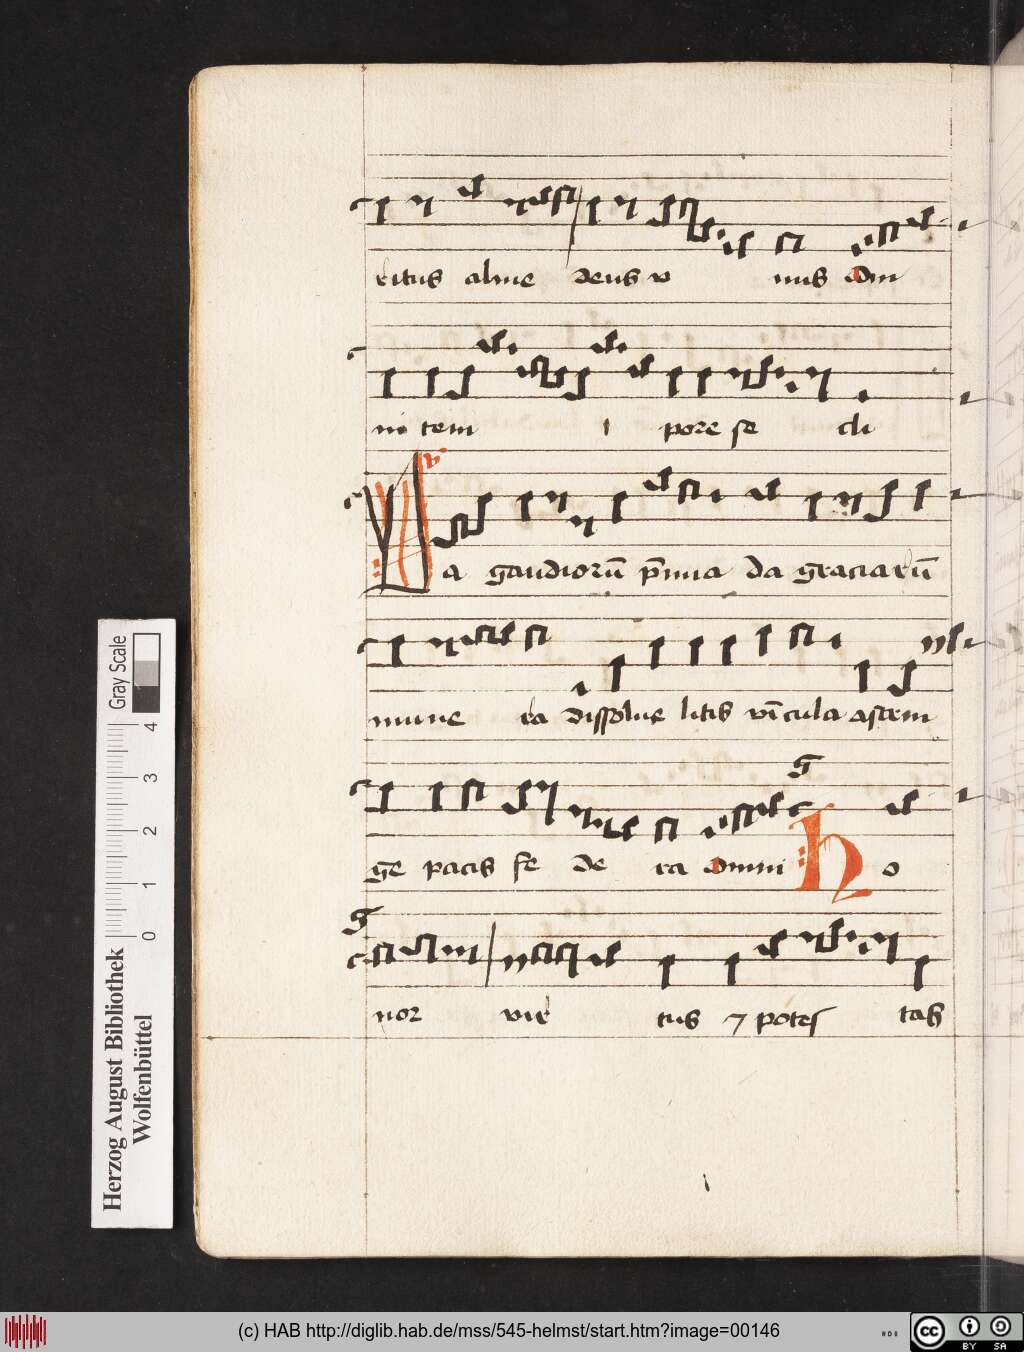 ritus alme deus v nus Om
ni tem i pore se cli
V
Da gaudiorū p̄mia da graciarū
mune ra dissolue litis vīcula astrm
ge pacis fe de ra Omni Ho
g
nor vir tus ⁊ potes tas
Gray Scale
0 1 2 3 4
Herzog August Bibliothek
Wolfenbüttel
(c) HAB http://diglib.hab.de/mss/545-helmst/start.htm?image=00146
cc BY SA